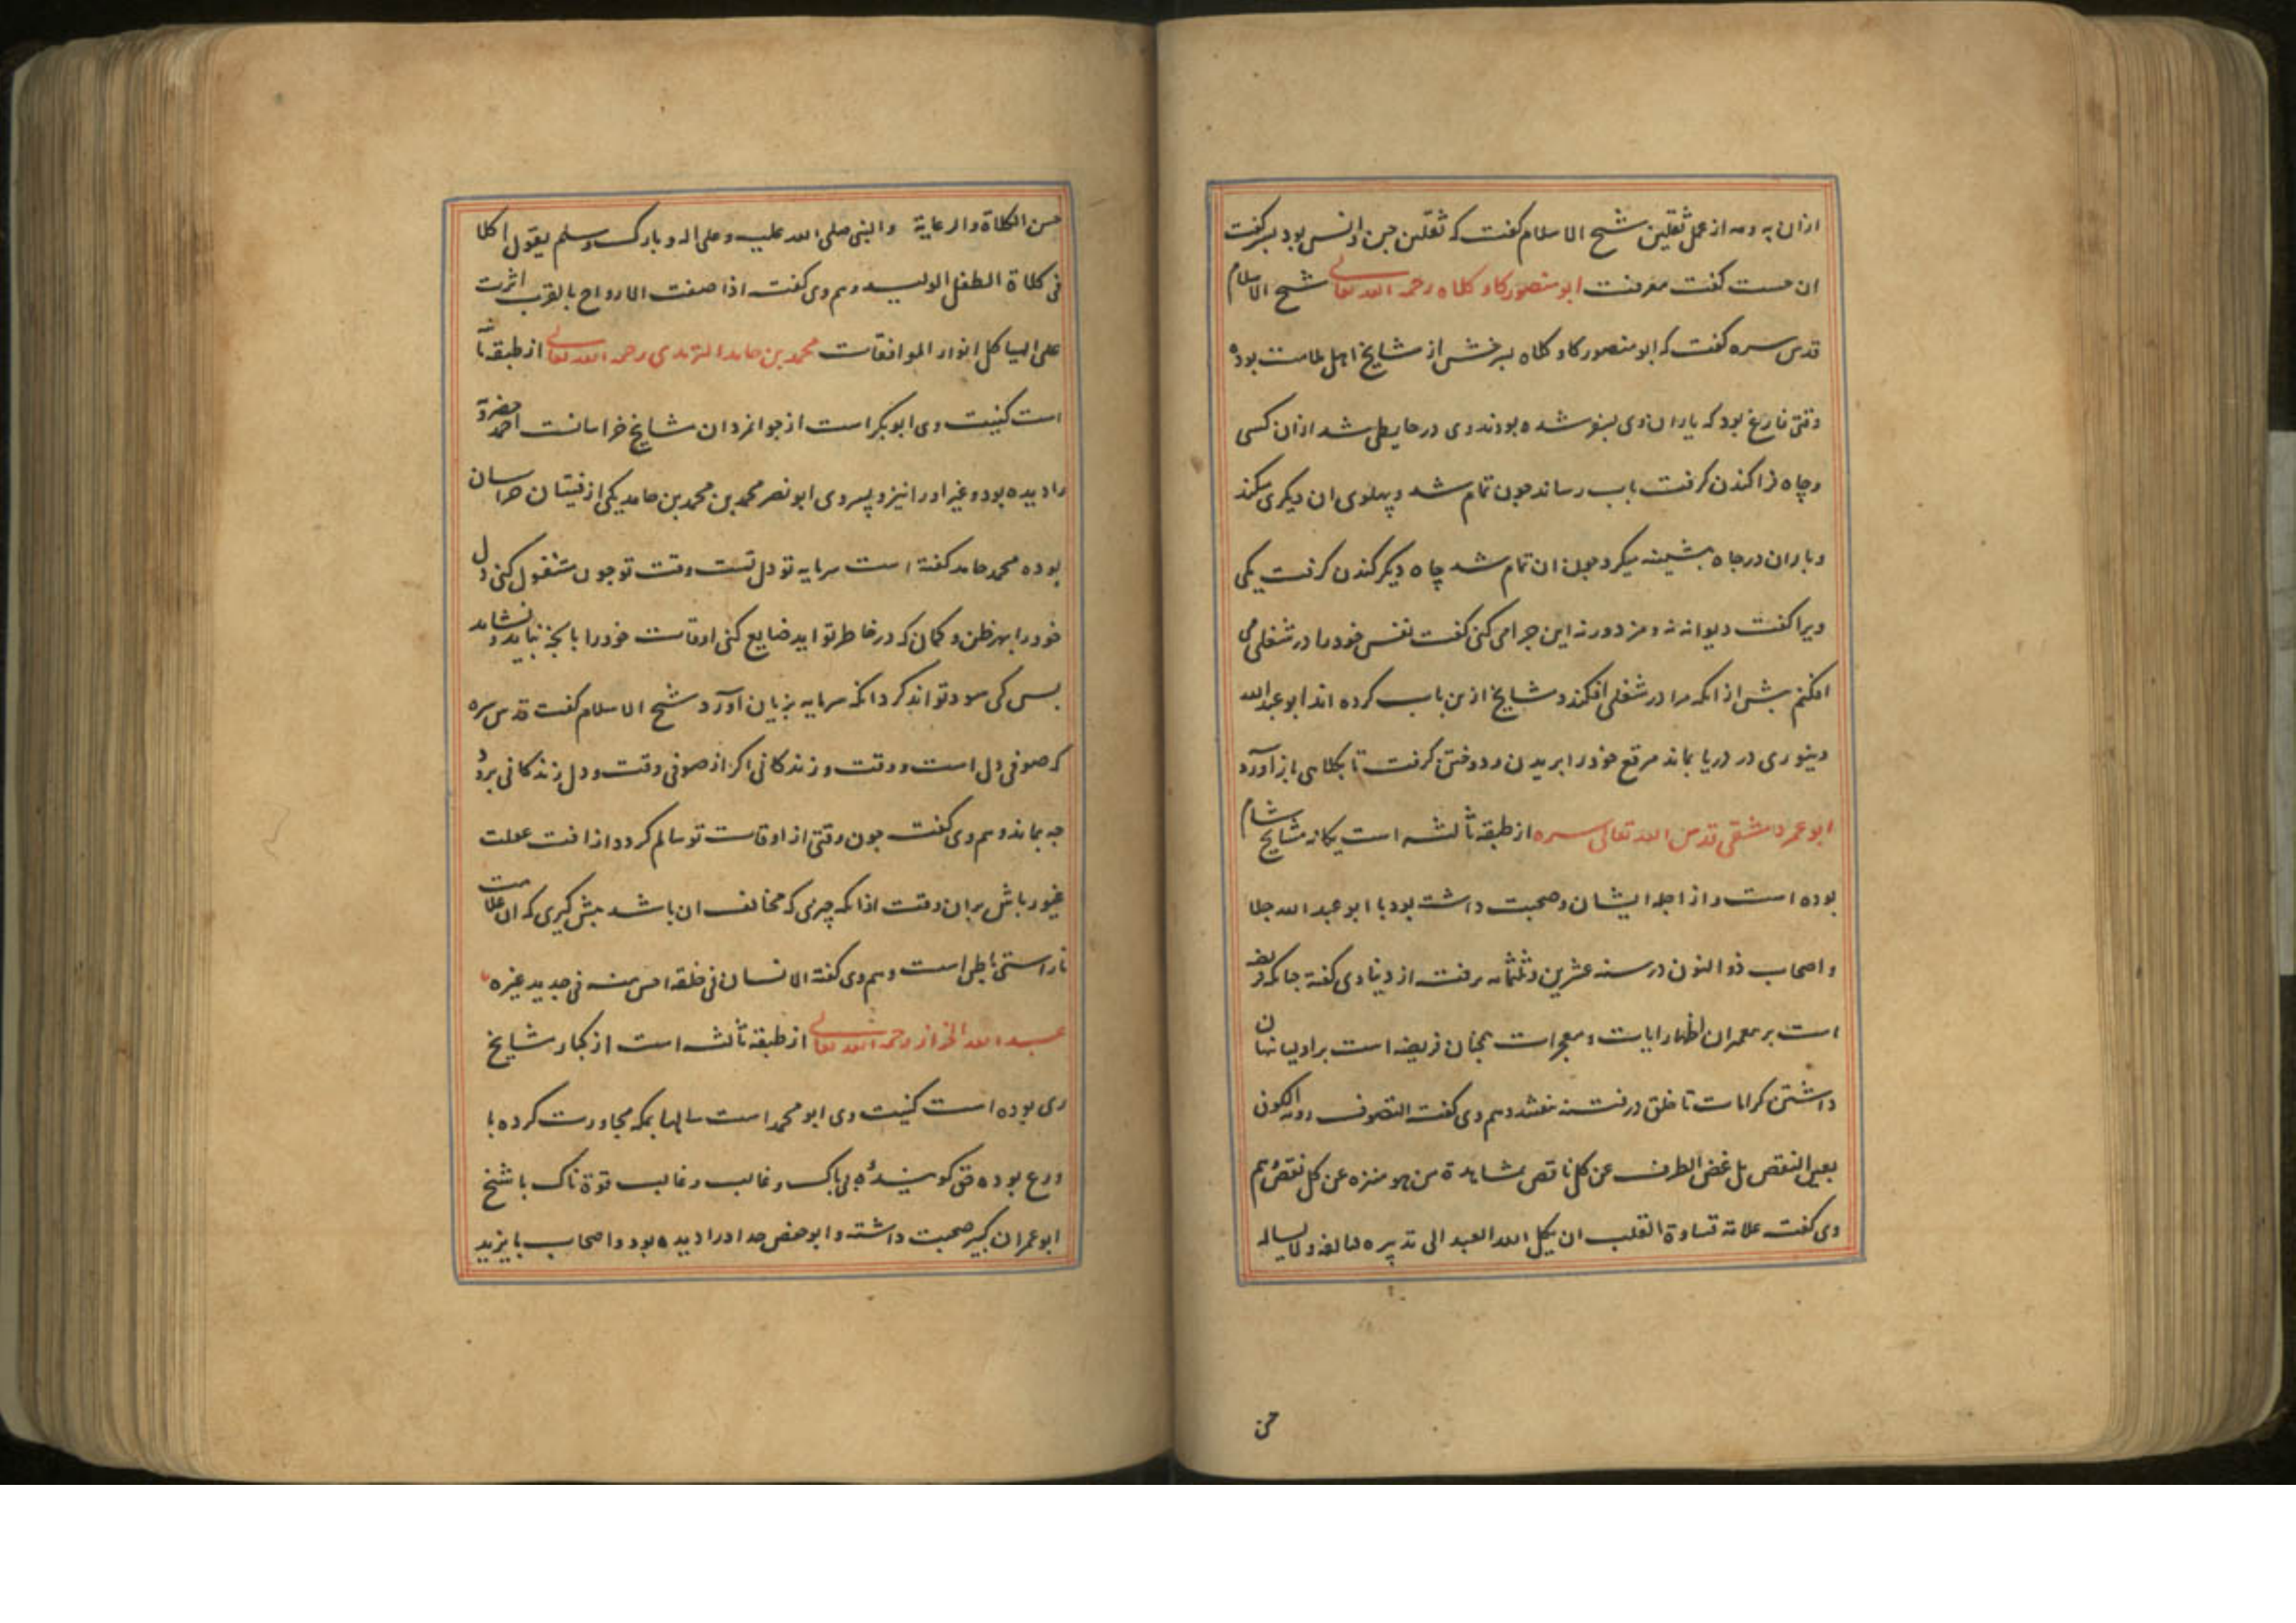 ازان به ومه از عمل ثقلین شیخ الاسلام کفت که ثقلین جن و انس بود بسر کفت
ان جست کفت معرفت ابو منصور کاو کلاه رحمه الله تعالی شیخ الاسلام
قدس سره کفت که ابو منصور کاو کلاه بسرخس از مشایخ اهل ملامت بوده
وقتی فارغ بود که یاران وی بسفر شده بودند وی در حایطی شد ازان کسی
وچاه فراکندن کرفت باب رساند جون تمام شد و پهلوی ان دیکری میکند
در جاه میکرد جون ان تمام شد چاه دیکر کندن کرفت یکی
ویرا کفت دیوانه نه و مزدور نه این جرا می کنی کفت نفس خود را در شغلی می
افکنم بیش از انکه مرا در شغلی افکند و مشایخ ازین باب کرده اند ابو عبدالله
دینوری در دریا بماند مرقع خود را بریدن و دوختن کرفت تا بکلاهی باز آورد
ابو عمرو دمشقی قدس الله تعالی سره از طبقه ثالثه است یکانه مشایخ شام
بوده است و از اجله ایشان و صحبت داشته بود با ابو عبد الله جلا
و اصحاب ذو النون در سنه عشرین و ثلثمائه برفت از دنیا وی کفته جنانکه فریضه
است بر پیغمبران اظهار ایات و معجزات همچنان فریضه است بر اولیا نهان
داشتن کرامات تا خلق در فتنه نیفتند و هم وی کفت التصوف رویه الکون
بعین النقص بل غض الطرف عن کل ناقص بمشاهدة من هو منزه عن کل نقص و هم
وی کفت علامة قساوة القلب ان یکل الله العبد الی تدبیره و لا یساله
حسن
حسن الکلاة والرعایة والنبی صلی الله علیه وعلی اله و بارک وسلم یقول اکلا
نی کلاة الطفل الولید و هم وی کفت اذا صفت الارواح بالقرب اثرت
علی الهیاکل انوار الموافقات محمد بن حامد الترمدی رحمه الله تعالی از طبقه ثا
است کنیت وی ابو بکر است از جوانمردان مشایخ خراسانست احمد خضرویه
را دیده بود و غیر او را نیز و پسر وی ابو نصر محمد بن محمد بن حامد یکی از فتیان خراسان
بوده محمد حامد کفته است سرمایه تو دل تست و وقت تو جون مشغول کنی دل
خود را بهر ظن و کمان که در خاطر تو اید ضایع کنی اوقات خود را بانچه نباید و نشاید
بس کی سود تواند کرد انکه سرمایه بزیان آورد شیخ الاسلام کفت قدس سره
که صوفی دل است و وقت و زندکانی اکر از صوفی وقت و دل و زندکانی برود
جه بماند و هم وی کفت جون وقتی از اوقات تو سالم کردد از افت غفلت
غیور باش بران وقت از انکه چیزی که مخالف ان باشد بیش کیری که ان علامت
ناراستی باطن است و هم وی کفته الانسان فی خلقه احسن منه فی جدید غیره
عبد الله الخراز رحمه الله تعالی از طبقه ثالثه است از کبار مشایخ
ری بوده است کنیت وی ابو محمد است سالها بمکه مجاورت کرده با
ورع بوده حق کوینده بی باک و غالب و غالب قوة ناک با شیخ
ابو عمران کبیر صحبت داشته و ابو حفص حداد را دیده بود و اصحاب بایزید